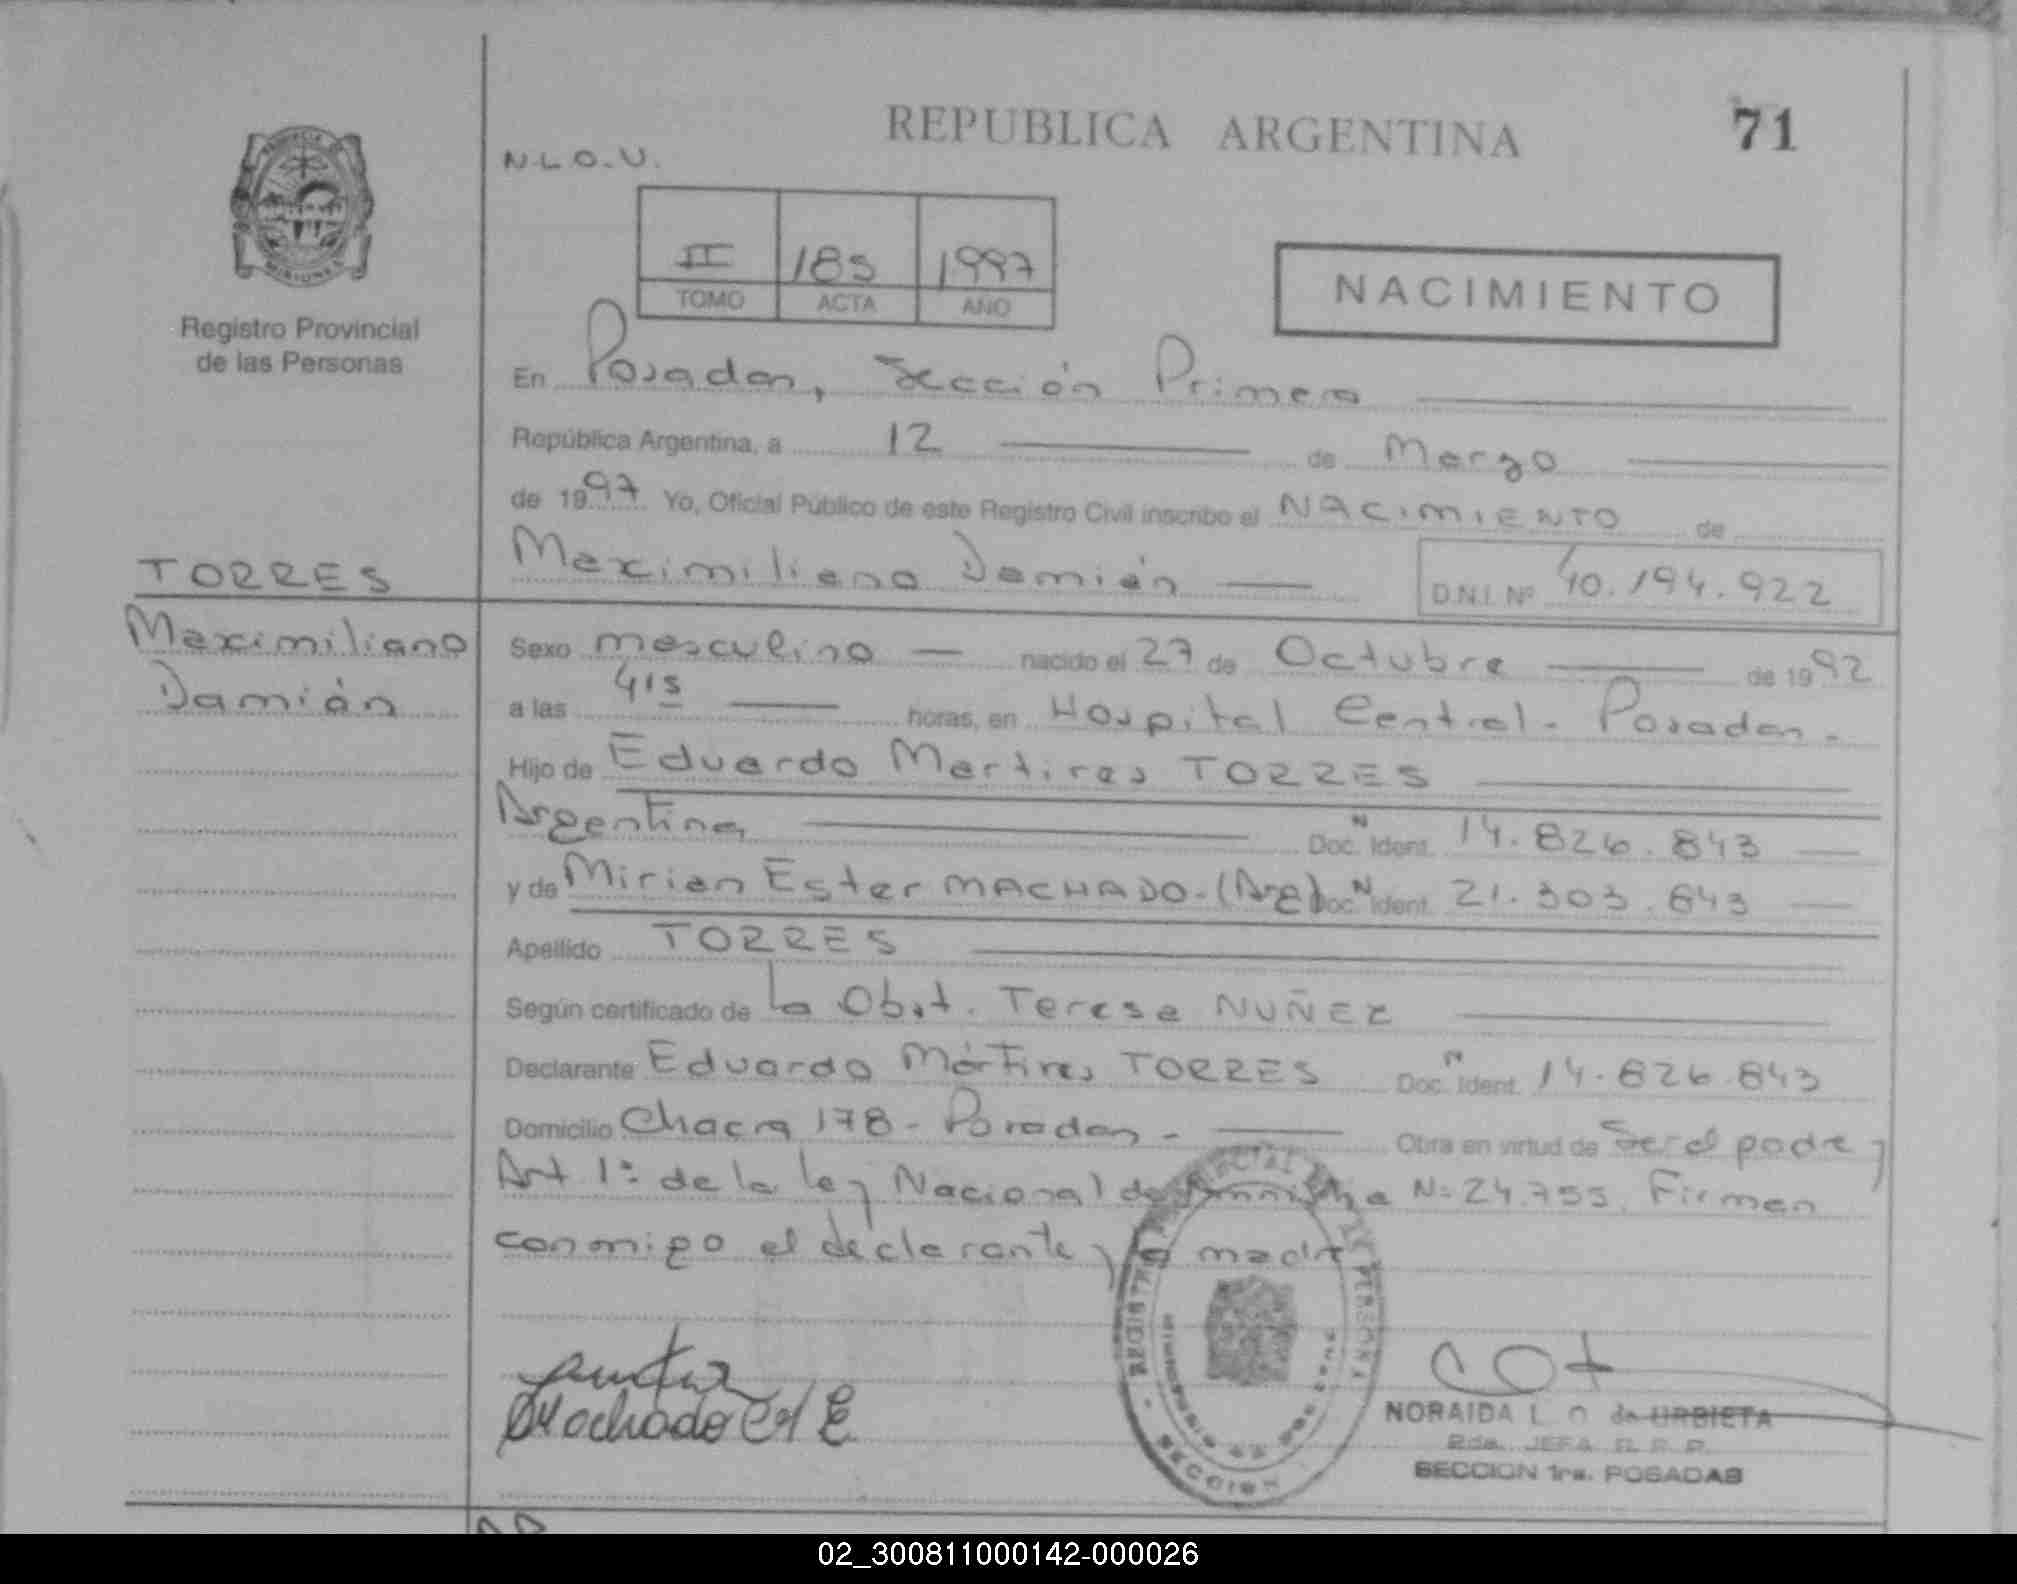 REPUBLICA ARGENTINA
71
N.L.O.U.
II 185 1997
TOMO ACTA AÑO
NACIMIENTO
MISIONES
Registro Provincial
de las Personas
En Posadas, Sección Primera
República Argentina, a 12 de Marzo
de 1997 Yo, Oficial Público de este Registro Civil inscribo el NACIMIENTO de
Maximiliano Damián
D.N.I. Nº 40.194.922
TORRES
Maximiliano
Damián
Sexo masculino nacido el 27 de Octubre de 1992
a las 4 15 horas, en Hospital Central - Posadas -
Hijo de Eduardo Martires TORRES
Argentina Doc. Ident. N 14.826.843
y de Mirian Ester MACHADO - (Arg) Doc. Ident. N 21.303.643
Apellido TORRES
Según certificado de la Obst. Teresa NUÑEZ
Declarante Eduardo Mártires TORRES Doc. Ident. N 14.826.843
Domicilio Chacra 178 - Posadas - Obra en virtud de Ser el padre y
Art 1º de la ley Nacional de Amnistia Nº 24.755. Firman
conmigo el declarante y la madre
Machado M E
NORAIDA L. O. de URBIETA
2da. JEFA R. P. P.
SECCION 1ra. POSADAS
02_300811000142-000026